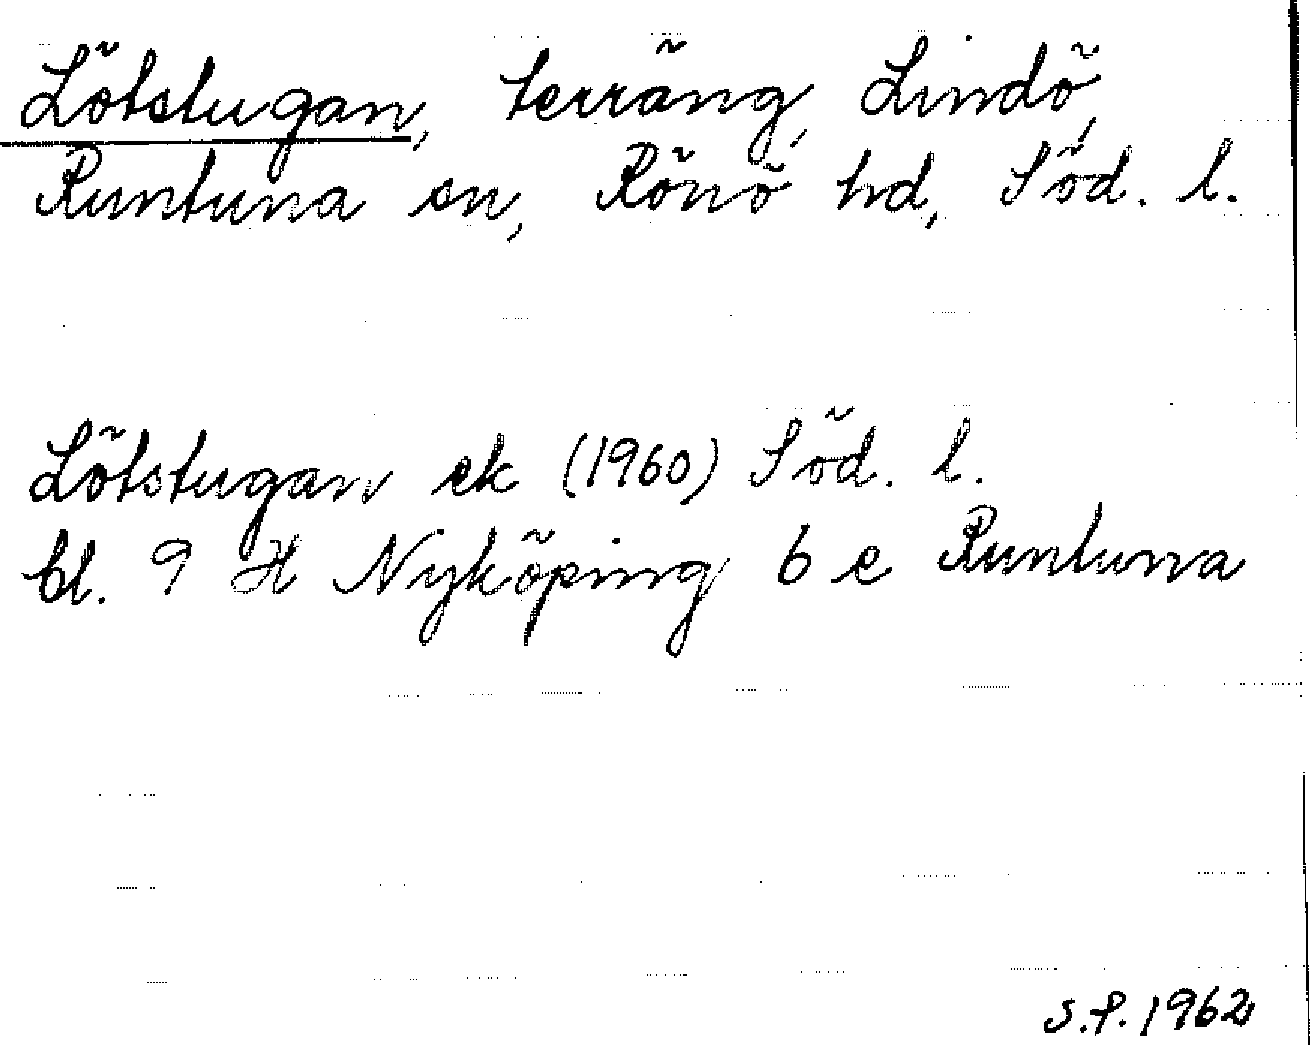 Lötstugan, terräng, Lindö,
Runtuna sn, Rönö hd, Söd. l.
Lötstugan ek (1960) Söd. l.
bl. 9 H Nyköping 6 e Runtuna
S.P. 1962